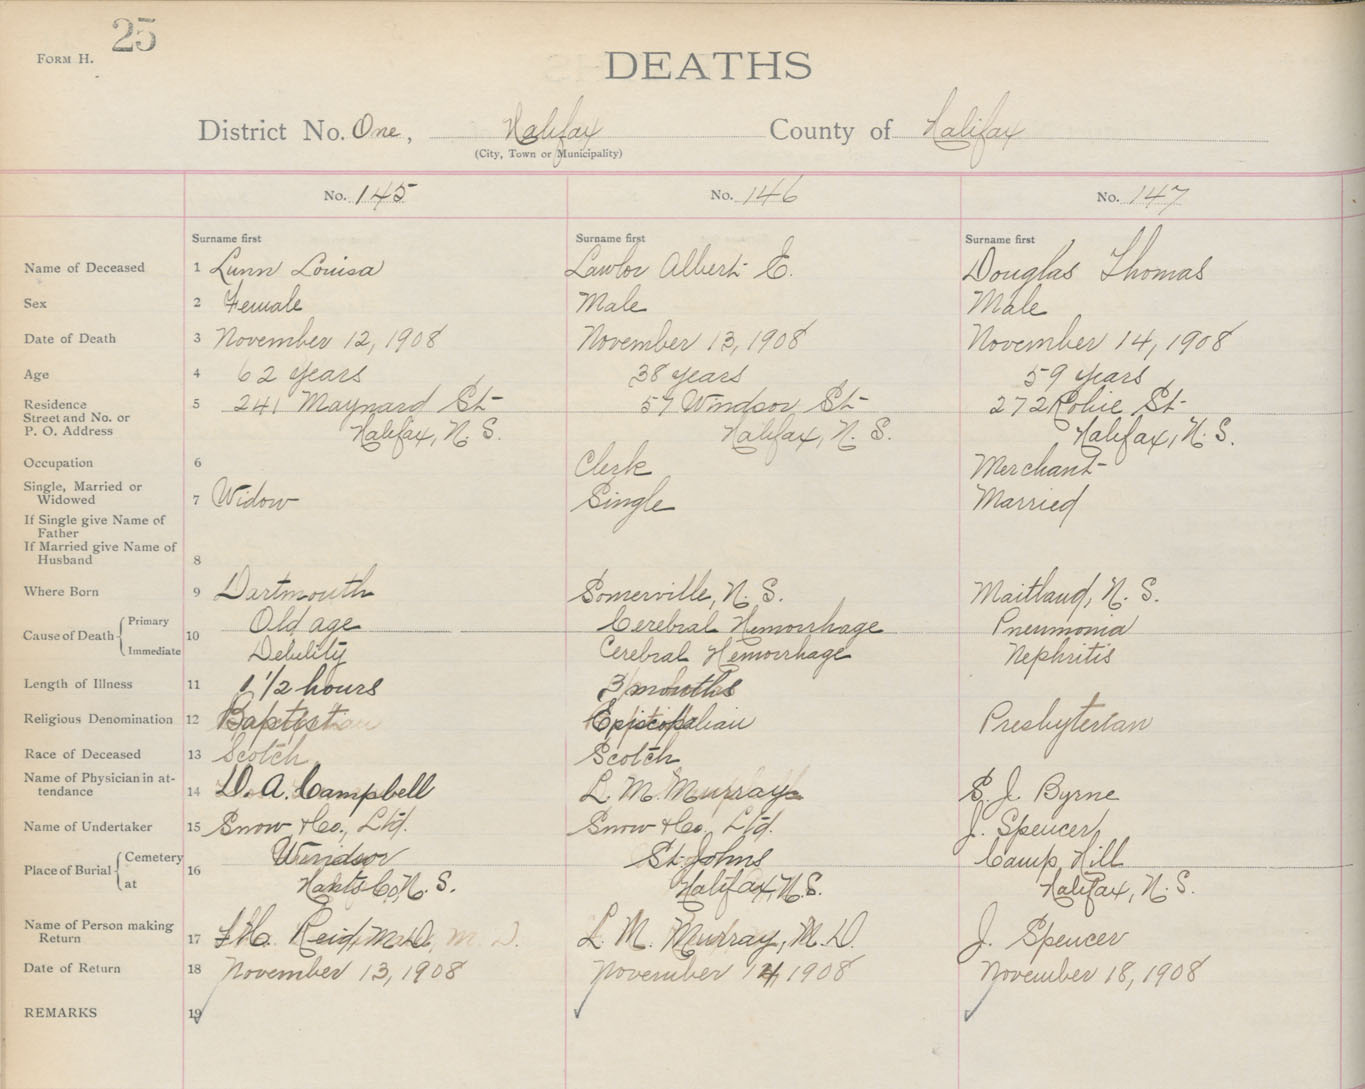 25
FORM H.
DEATHS
District No. One, Halifax County of Halifax
(City, Town or Municipality)
No. 145 No. 146 No. 147
Surname first Surname first Surname first
Name of Deceased 1 Lunn Louisa Lawlor Albert E. Douglas Thomas
Sex 2 Female Male Male
Date of Death 3 November 12, 1908 November 13, 1908 November 14, 1908
Age 4 62 years 38 years 59 years
Residence 5 241 Maynard St 57 Windsor St 272 Robie St
Street and No. or
P. O. Address Halifax, N. S. Halifax, N. S. Halifax, N. S.
Occupation 6 Clerk Merchant
Single, Married or
Widowed 7 Widow Single Married
If Single give Name of
Father
If Married give Name of
Husband 8
Where Born 9 Dartmouth Somerville, N. S. Maitland, N. S.
Cause of Death Primary 10 Old age Cerebral Hemorrhage Pneumonia
Immediate Debility Cerebral Hemorrhage Nephritis
Length of Illness 11 1 1/2 hours 3 months
Religious Denomination 12 Baptist Episcopalian Presbyterian
Race of Deceased 13 Scotch Scotch
Name of Physician in at-
tendance 14 D. A. Campbell L. M. Murray S. J. Byrne
Name of Undertaker 15 Snow & Co., Ltd. Snow & Co. Ltd. J. Spencer
Place of Burial Cemetery 16 Windsor St. Johns Camp Hill
at Hants Co., N. S. Halifax, N. S. Halifax, N. S.
Name of Person making
Return 17 Reid, M.D. L. M. Murray, M.D. J. Spencer
Date of Return 18 November 13, 1908 November 14, 1908 November 18, 1908
REMARKS 19